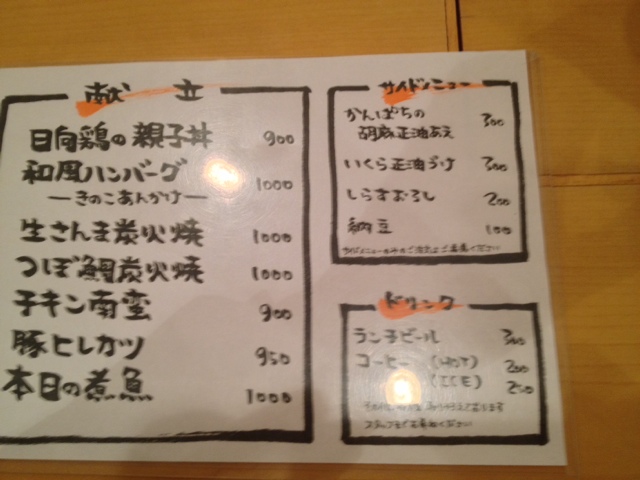 献立
日向鶏の親子丼 900
和風ハンバーグ 1000
—きのこあんかけ—
生さんま炭火焼 1000
つぼ鯛炭火焼 1000
チキン南蛮 900
豚ヒレカツ 950
本日の煮魚 1000
サイドメニュー
かんぱちの
胡麻正油あえ 300
いくら正油づけ 300
しらすおろし 200
納豆 100
サイドメニューのみのご注文はご遠慮ください
ドリンク
ランチビール 300
コーヒー (HOT) 200
(ICE) 250
スタッフまでお尋ねください